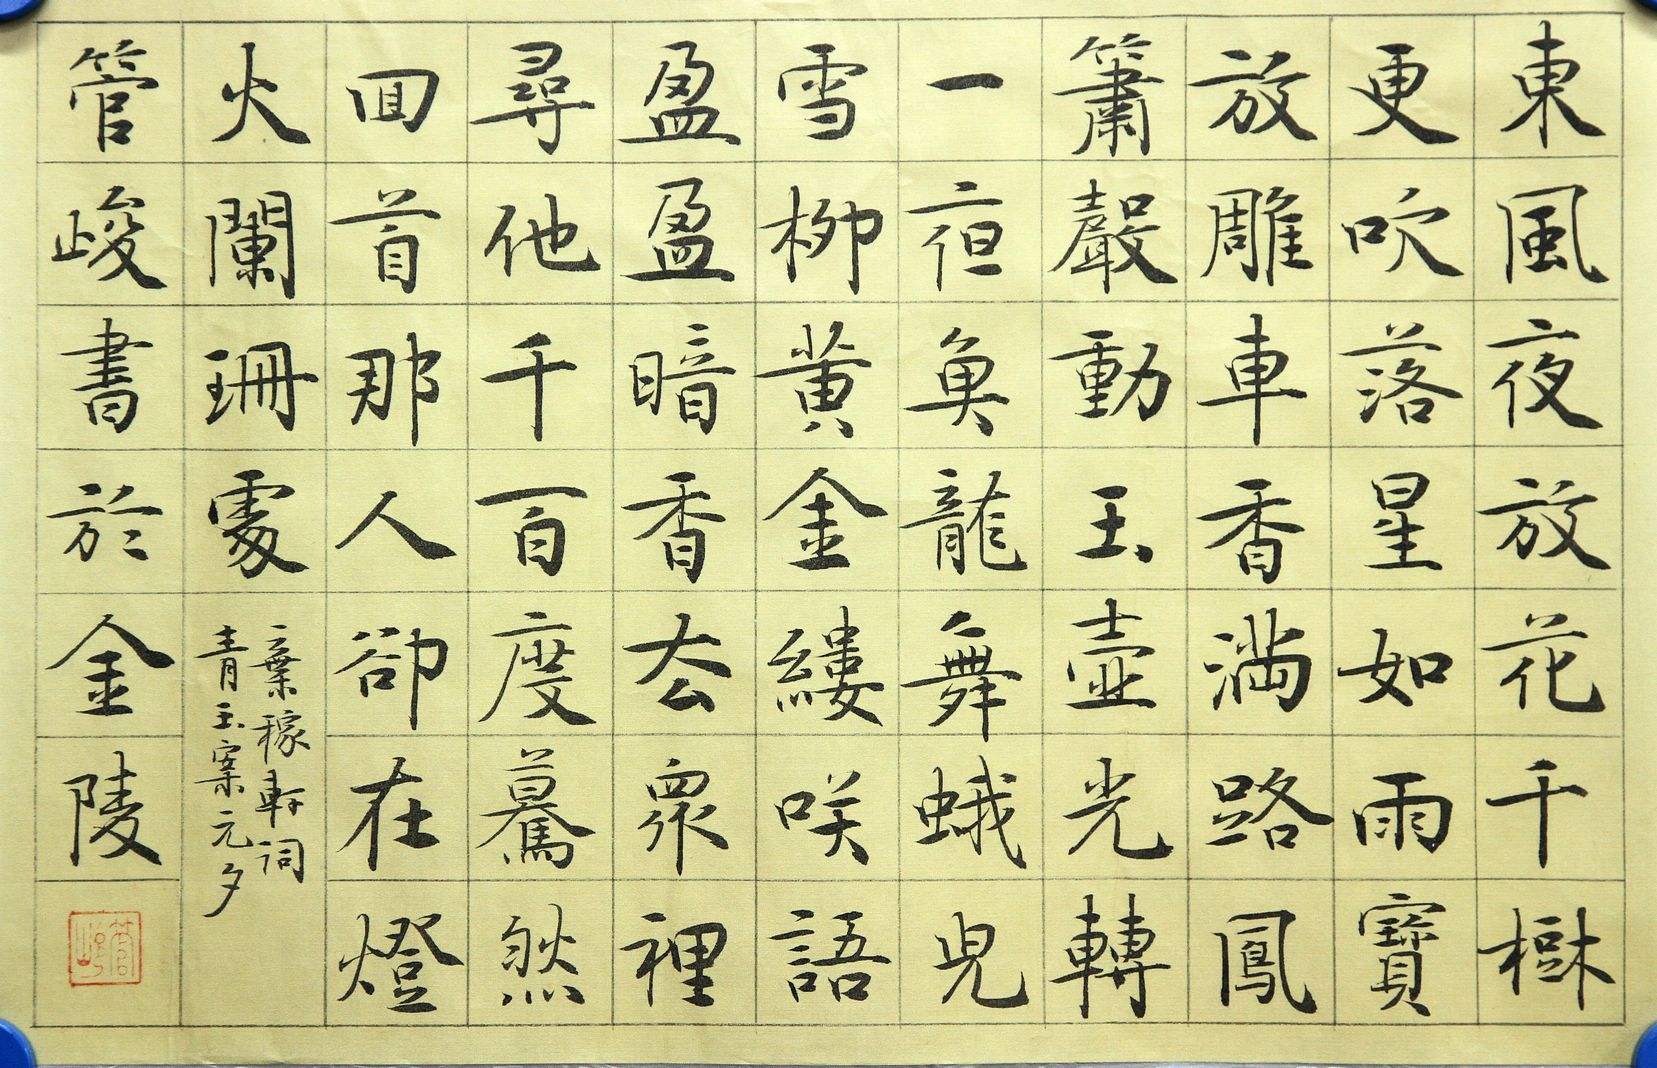 東風夜放花千樹
更吹落星如雨寶
放雕車香滿路鳳
簫聲動玉壺光轉
一夜魚龍舞蛾兒
雪柳黃金縷咲語
盈盈暗香去眾裡
尋他千百度驀然
回首那人卻在燈
火闌珊處
辛稼軒詞
青玉案元夕
管峻書於金陵
管峻